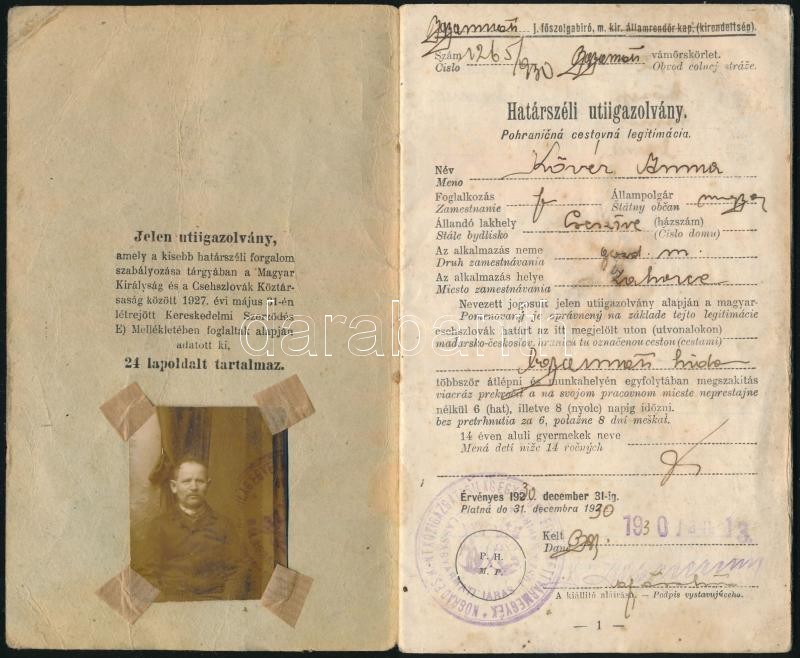 Jelen utiigazolvány,
amely a kisebb határszéli forgalom
szabályozása tárgyában a Magyar
Királyság és a Csehszlovák Köztár-
saság között 1927. évi május 31-én
létrejött Kereskedelmi Szerződés
E) Mellékletében foglaltak alapján
adatott ki,
24 lapoldalt tartalmaz.
j. főszolgabíró, m. kir. államrendőr kap. (kirendeltség).
Szám 1265/930 vámőrskörlet.
Číslo Obvod colnej stráže.
Határszéli utiigazolvány.
Pohraničná cestovná legitimácia.
Név Kövér Anna
Meno
Foglalkozás Állampolgár magyar
Zamestnanie Štátny občan
Állandó lakhely (házszám)
Stále bydlisko (Číslo domu)
Az alkalmazás neme gazd. m.
Druh zamestnávania
Az alkalmazás helye Zahorce
Miesto zamestnávania
Nevezett jogosult jelen utiigazolvány alapján a magyar-
Pomenovaný je oprávnený na základe tejto legitimácie
csehszlovák határt az itt megjelölt uton (utvonalokon)
maďarsko-českoslov. hranicu tu označenou cestou (cestami)
többször átlépni és munkahelyén egyfolytában megszakítás
viacráz prekročiť a na svojom pracovnom mieste neprestajne
nélkül 6 (hat), illetve 8 (nyolc) napig időzni.
bez pretrhnutia za 6, poťažne 8 dní meškať.
14 éven aluli gyermekek neve
Mená detí niže 14 ročných
Érvényes 1930 december 31-ig.
Platná do 31. decembra 1930
Kelt 1930 13
Dané
P. H.
M. P.
A kiállító aláírása. — Podpis vystavujúceho.
— 1 —
darabanth.com